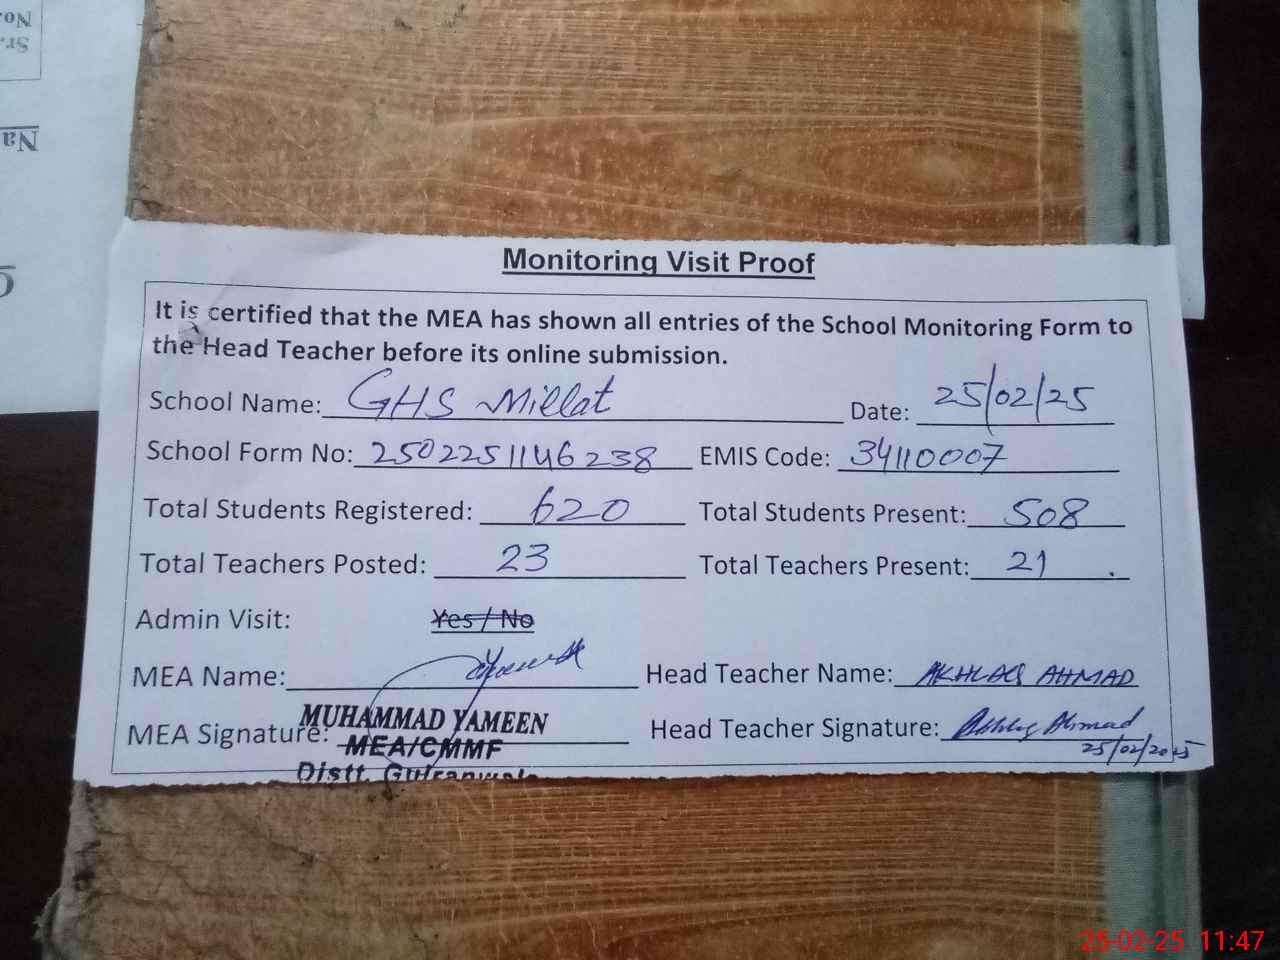 Sr.
No.
Na
Monitoring Visit Proof
It is certified that the MEA has shown all entries of the School Monitoring Form to
the Head Teacher before its online submission.
School Name: GHS Millat Date: 25/02/25
School Form No: 2502251146238 EMIS Code: 34110007
Total Students Registered: 620 Total Students Present: 508
Total Teachers Posted: 23 Total Teachers Present: 21
Admin Visit: Yes / No
MEA Name: Head Teacher Name: AKHLAQ AHMAD
MEA Signature: MUHAMMAD YAMEEN Head Teacher Signature: Akhlaq Ahmad
MEA/CMMF 25/02/2025
Distt. Gujranwala
25-02-25 11:47